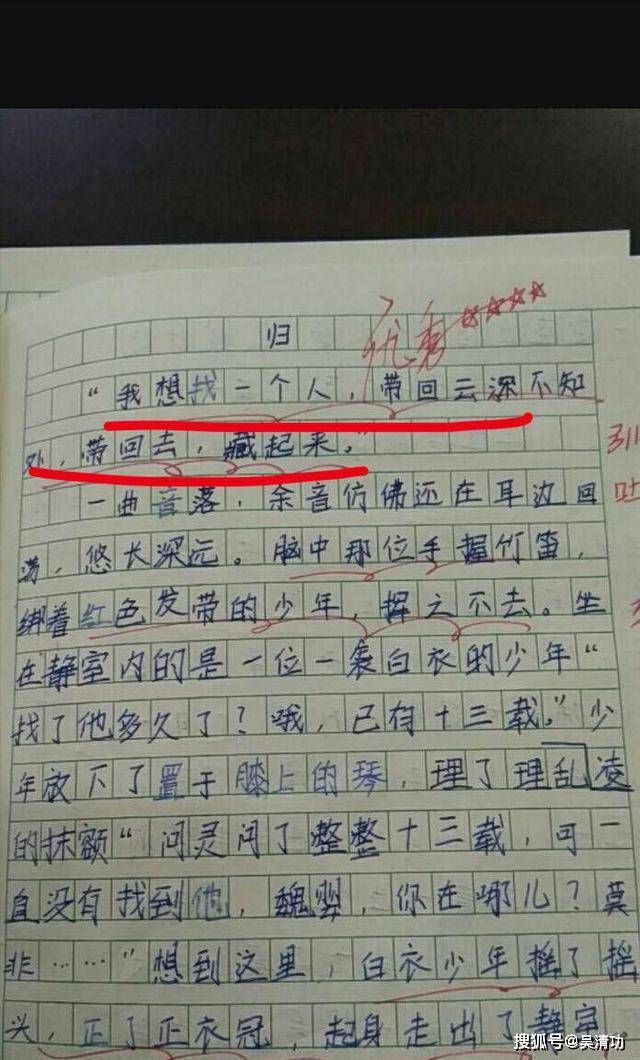 归
优秀☆☆☆☆
“我想找一个人，带回云深不知
处，带回去，藏起来。”
一曲音落，余音仿佛还在耳边回
荡，悠长深元。脑中那位手握竹笛，
绑着红色发带的少年，挥之不去。坐
在静室内的是一位一袭白衣的少年“
找了他多久了？哦，已有十三载。”少
年放下了置于膝上的琴，理了理乱凌
的抹额“问灵问了整整十三载，可一
直没有找到他，魏婴，你在哪儿？莫
非……”想到这里，白衣少年摇了摇
头，正了正衣冠 起身走出了静室
引
吐
搜狐号@吴清功